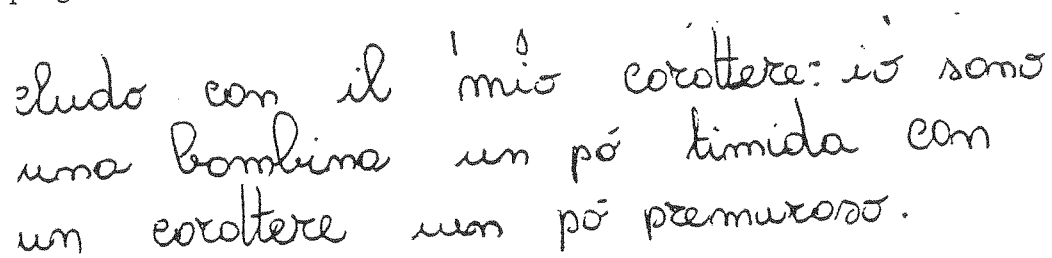 cludo con il mio carattere: io sono
una bambina un pó timida con
un carattere un pó premuroso.